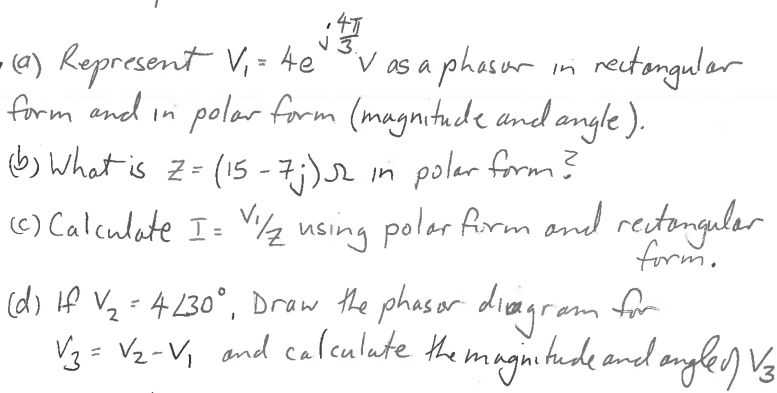 (a) Represent V₁ = 4e^(j 4π/3) V as a phasor in rectangular
form and in polar form (magnitude and angle).
(b) What is Z = (15 - 7j)Ω in polar form?
(c) Calculate I = V₁/Z using polar form and rectangular
form.
(d) If V₂ = 4∠30°, Draw the phasor diagram for
V₃ = V₂ - V₁ and calculate the magnitude and angle of V₃